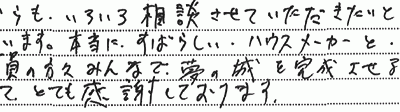 らも、いろいろ相談させていただきたいと
います。本当に、すばらしい、ハウスメーカーと、
員の方々みんなで、夢の城を完成させる
て、とても感謝しております。